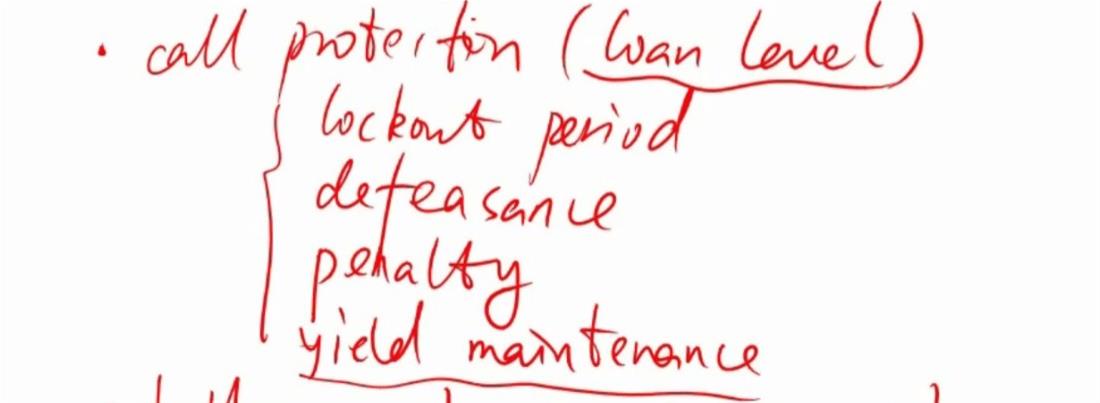 • call protection (loan level)
lockout period
defeasance
penalty
yield maintenance